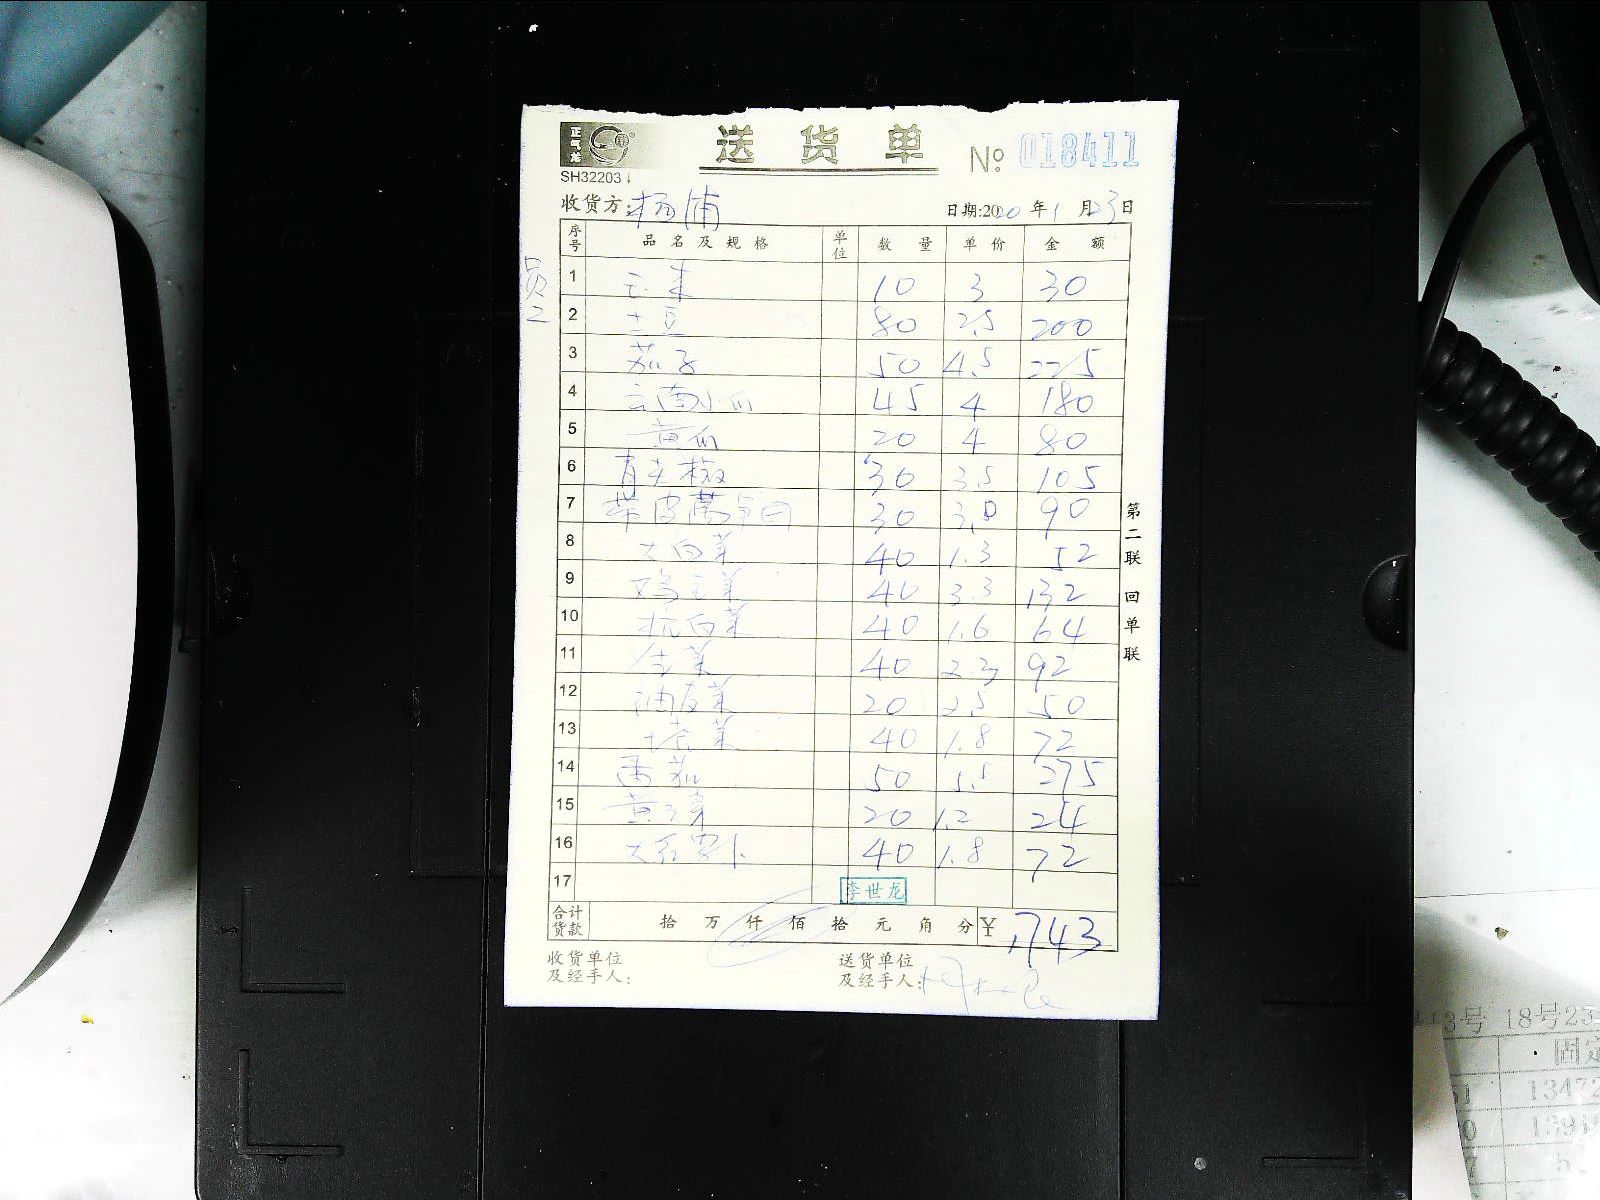 正气龙
送货单 № 018411
SH32203↓
收货方: 杨浦 日期:2020年1月23日
序号 品名及规格 单位 数量 单价 金额
员工
1 10 3 30
2 土豆 80 2.5 200
3 茄子 50 4.5 225
4 云南小瓜 45 4 180
5 黄瓜 20 4 80
6 青尖椒 30 3.5 105
7 带皮莴笋 30 3.0 90
8 大白菜 40 1.3 52
9 鸡毛菜 40 3.3 132
10 杭白菜 40 1.6 64
11 生菜 40 2.3 92
12 油麦菜 20 2.5 50
13 塔菜 40 1.8 72
14 番茄 50 5.5 275
15 黄豆芽 20 1.2 24
16 大红萝卜 40 1.8 72
17
李世龙
合计货款 拾万仟佰拾元角分 ¥ 1743
收货单位及经手人:
送货单位及经手人:
第二联 回单联
13号 18号23
固定
51 13472
0 1391
7 5